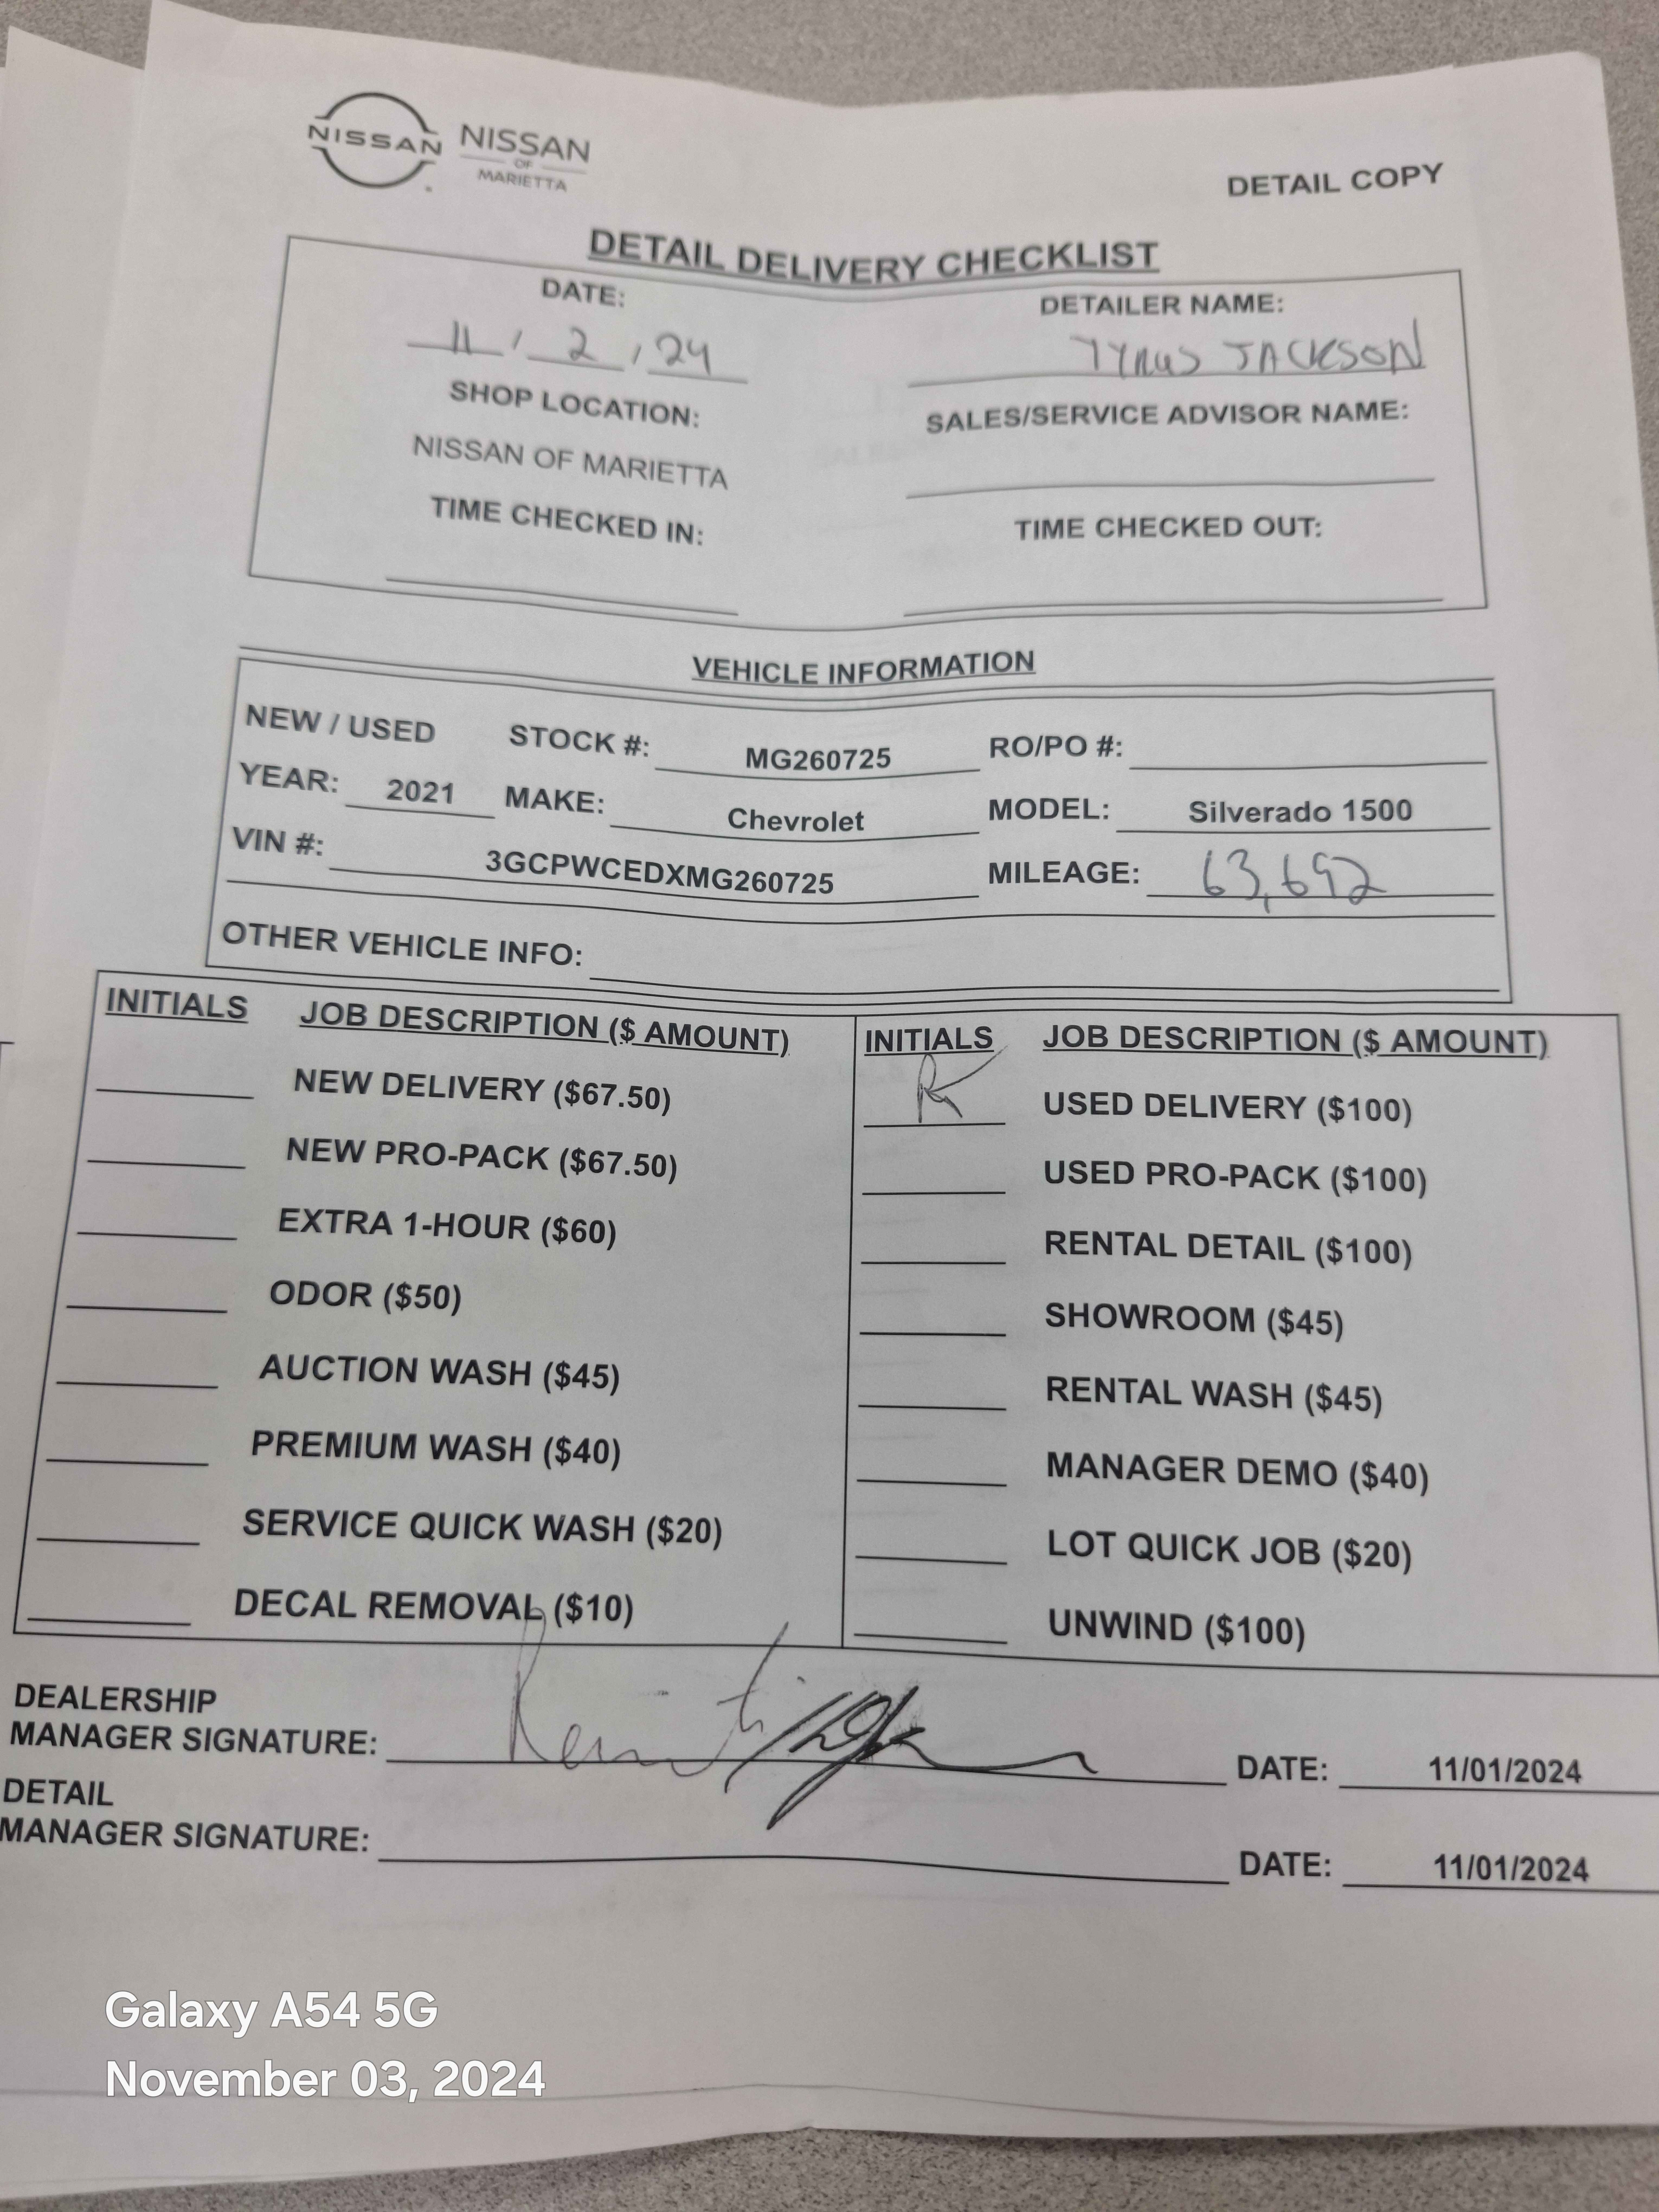 NISSAN
NISSAN
OF
MARIETTA
DETAIL COPY
DETAIL DELIVERY CHECKLIST
DATE: DETAILER NAME:
11 / 2 / 24 TYRUS JACKSON
SHOP LOCATION: SALES/SERVICE ADVISOR NAME:
NISSAN OF MARIETTA
TIME CHECKED IN: TIME CHECKED OUT:
VEHICLE INFORMATION
NEW / USED STOCK #: MG260725 RO/PO #:
YEAR: 2021 MAKE: Chevrolet MODEL: Silverado 1500
VIN #: 3GCPWCEDXMG260725 MILEAGE: 63,692
OTHER VEHICLE INFO:
INITIALS JOB DESCRIPTION ($ AMOUNT) INITIALS JOB DESCRIPTION ($ AMOUNT)
NEW DELIVERY ($67.50) USED DELIVERY ($100)
NEW PRO-PACK ($67.50) USED PRO-PACK ($100)
EXTRA 1-HOUR ($60) RENTAL DETAIL ($100)
ODOR ($50) SHOWROOM ($45)
AUCTION WASH ($45) RENTAL WASH ($45)
PREMIUM WASH ($40) MANAGER DEMO ($40)
SERVICE QUICK WASH ($20) LOT QUICK JOB ($20)
DECAL REMOVAL ($10) UNWIND ($100)
DEALERSHIP
MANAGER SIGNATURE: DATE: 11/01/2024
DETAIL
MANAGER SIGNATURE: DATE: 11/01/2024
Galaxy A54 5G
November 03, 2024